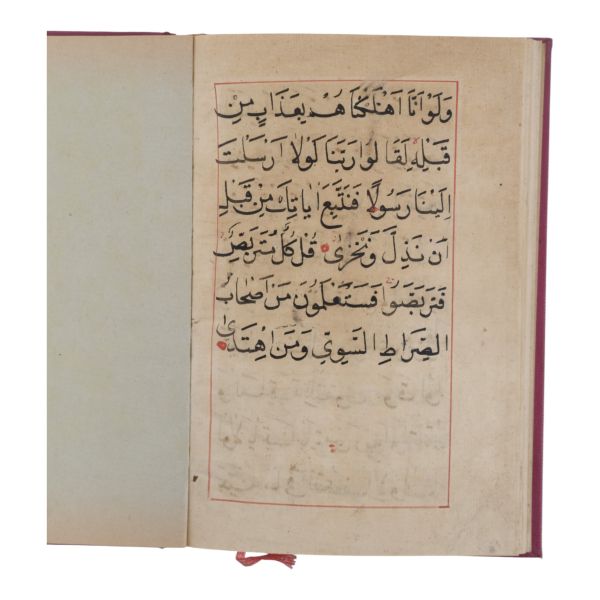 وَلَوْ اَنَّا اَهْلَكْنَاهُمْ بِعَذَابٍ مِنْ
قَبْلِهِ لَقَالُوا رَبَّنَا لَوْلَا اَرْسَلْتَ
اِلَيْنَا رَسُولًا فَنَتَّبِعَ اٰيَاتِكَ مِنْ قَبْلِ
اَنْ نَذِلَّ وَنَخْزٰى قُلْ كُلٌّ مُتَرَبِّصٌ
فَتَرَبَّصُوا فَسَتَعْلَمُونَ مَنْ اَصْحَابُ
الصِّرَاطِ السَّوِيِّ وَمَنِ اهْتَدٰى